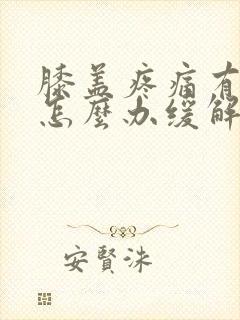 膝盖疼痛有
怎麼办缓解
安賢洙